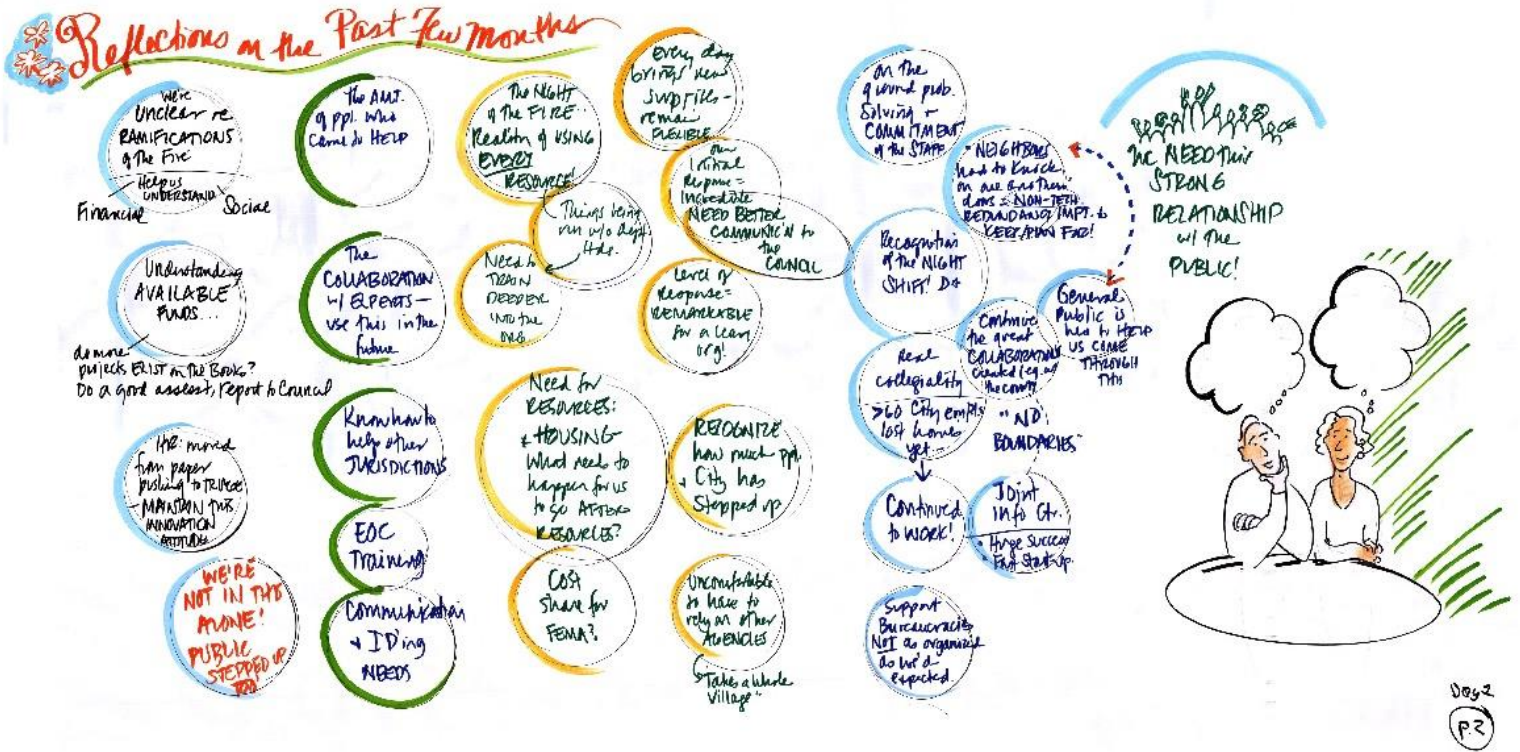 Reflections on the Past Few Months
We're
Unclear re
RAMIFICATIONS
of the Fire
Help us
UNDERSTAND
Financial
Social
Understanding
AVAILABLE
FUNDS...
do more
projects EXIST on the Books?
Do a good assesst, report to Council
HR: moved
from paper
pushing to TRIAGE
- MAINTAIN this
INNOVATION
ATTITUDE
WE'RE
NOT IN THIS
ALONE!
PUBLIC
STEPPED UP
TOO
The AMT.
of ppl. who
came to HELP
The
COLLABORATION
w/ EXPERTS -
use this in the
future
Know how to
help other
JURISDICTIONS
EOC
Training
Communication
+ ID'ing
NEEDS
The NIGHT
of the FIRE..
Reality of USING
EVERY
RESOURCE!
Things being
run w/o dept.
Hds.
Need to
TRAIN
DEEPER
INTO the
ORG
Need for
RESOURCES:
* HOUSING-
What needs to
happen for us
to go AFTER
RESOURCES?
Cost
share for
FEMA?
Every day
brings new
surprises -
remain
FLEXIBLE
our
initial
Response =
Incredible
NEED BETTER
COMMUNIC'N to
the
COUNCIL
Level of
Response =
REMARKABLE
for a lean
org!
RECOGNIZE
how much ppl.
+ City has
Stepped up
Uncomfortable
to have to
rely on other
AGENCIES
"Takes a whole
Village"
On the
ground prob.
Solving +
COMMITMENT
of the STAFF
"NEIGHBORS
had to knock
on one another's
doors = NON-TECH
REDUNDANCY IMPT. to
KEEP/PLAN FOR!
Recognition
of the NIGHT
SHIFT!
Real
collegiality
>60 City empls
lost homes
yet...
Continued
to WORK!
Support
Bureaucracies
NOT as organized
as we'd
expected
Continue
the great
COLLABORATION
created (eg. w/
the county
"NO
BOUNDARIES"
Joint
Info Ctr.
• Huge Success
• Fast Start-up
General
Public is
here to HELP
US COME
THROUGH
THIS
We NEED this
STRONG
RELATIONSHIP
w/ the
PUBLIC!
Day 2
P.2